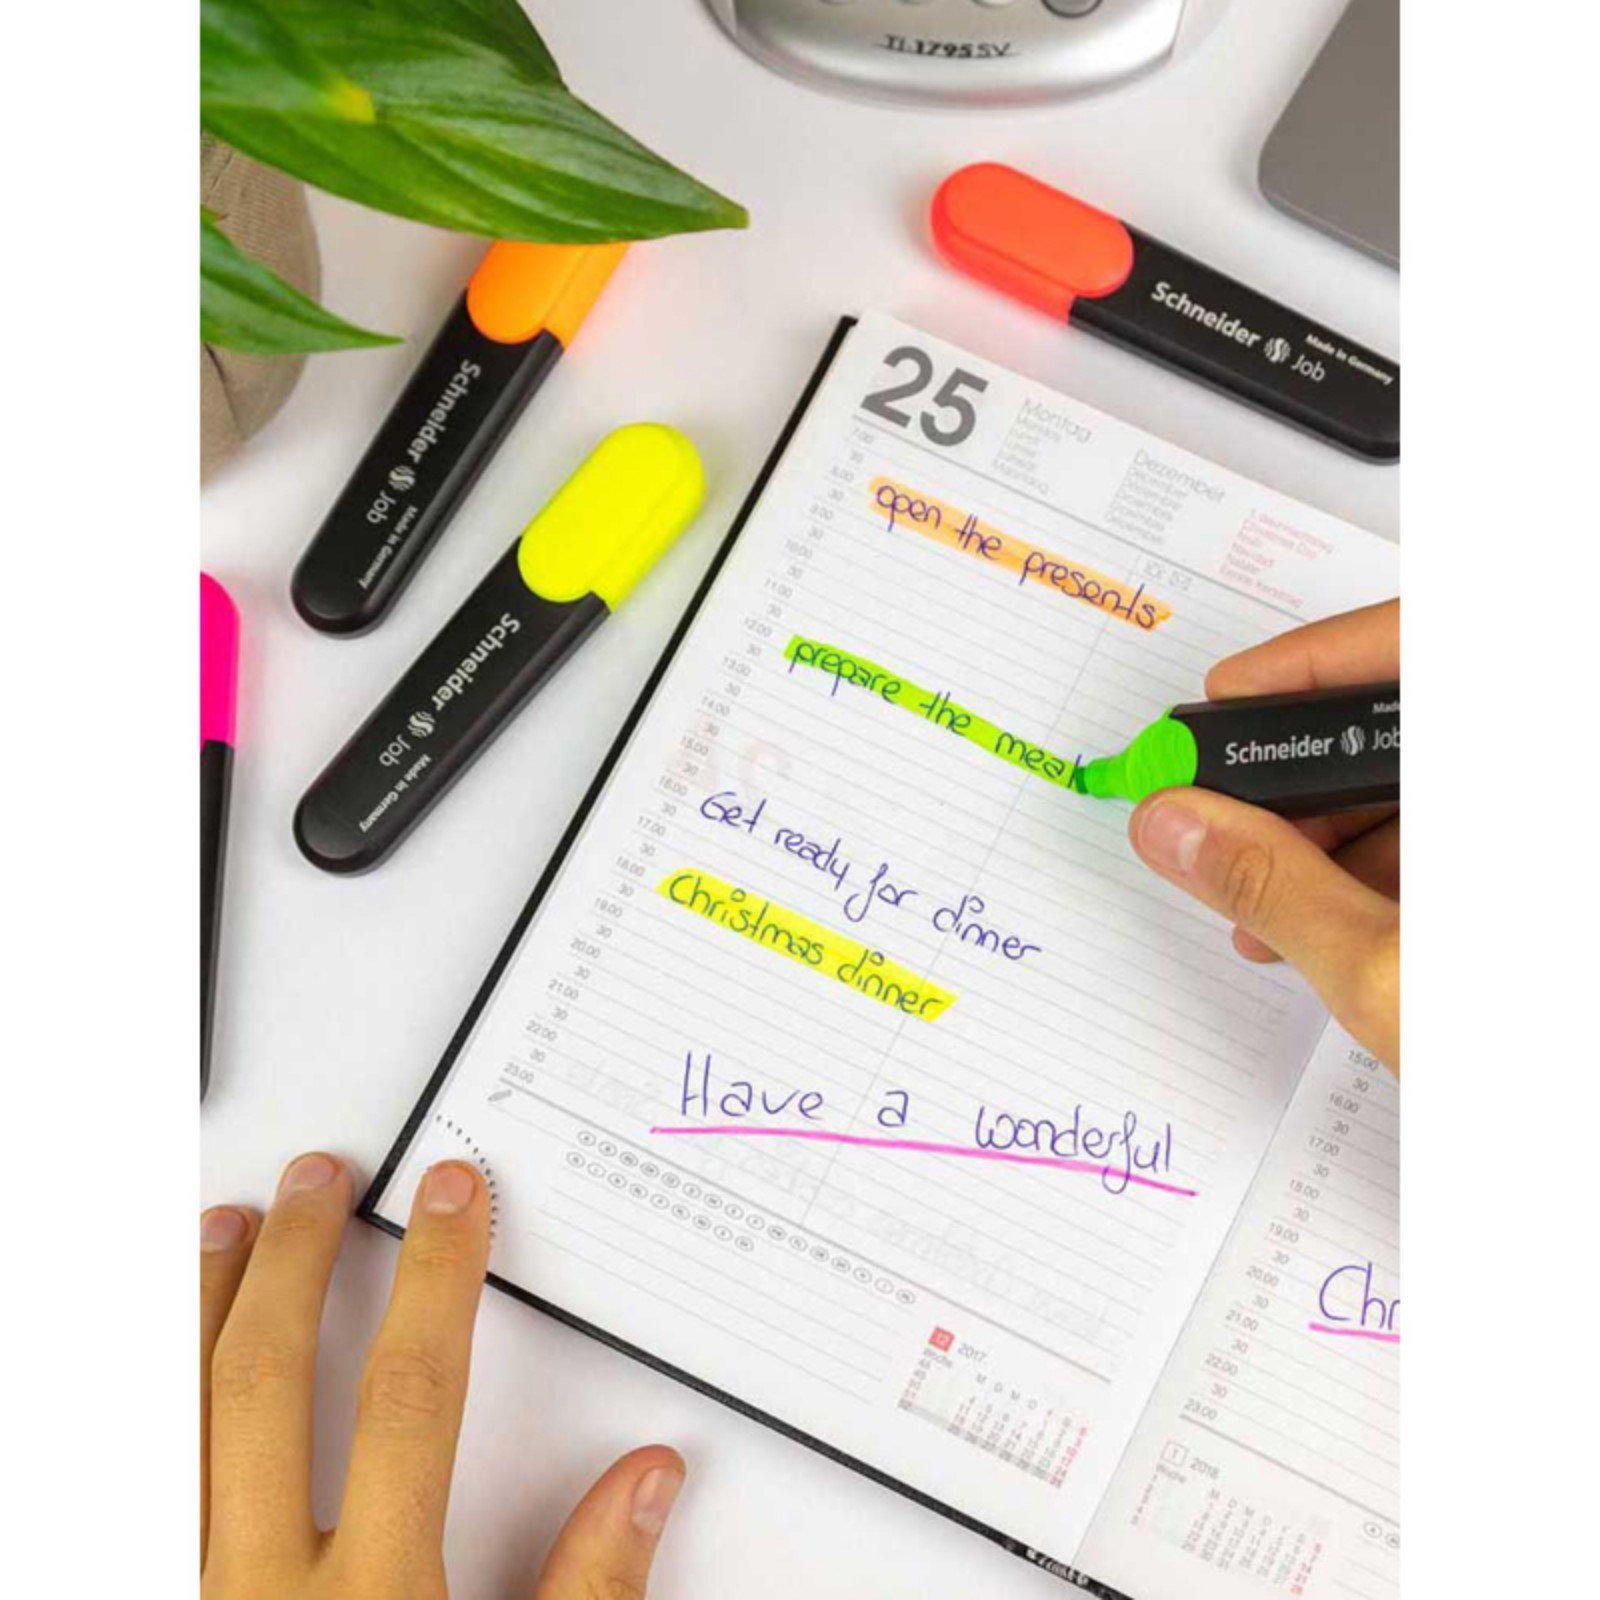 TI-1795 SV
Schneider Job
Made in Germany
Schneider Job
Made in Germany
Schneider Job
Made in Germany
25
Montag
Dezember
7.00
30
8.00
open the presents
30
9.00
30
10.00
30
11.00
30
12.00
prepare the meal
30
13.00
Made
Schneider Job
30
14.00
30
15.00
30
16.00
Get ready for dinner
30
17.00
30
18.00
Christmas dinner
30
19.00
30
20.00
30
21.00
30
22.00
30
23.00
Have a wonderful
12 2017
Woche
M D M D
15.00
30
16.00
30
17.00
30
18.00
30
19.00
30
20.00
Chr
30
21.00
30
22.00
30
23.00
1 2018
Woche